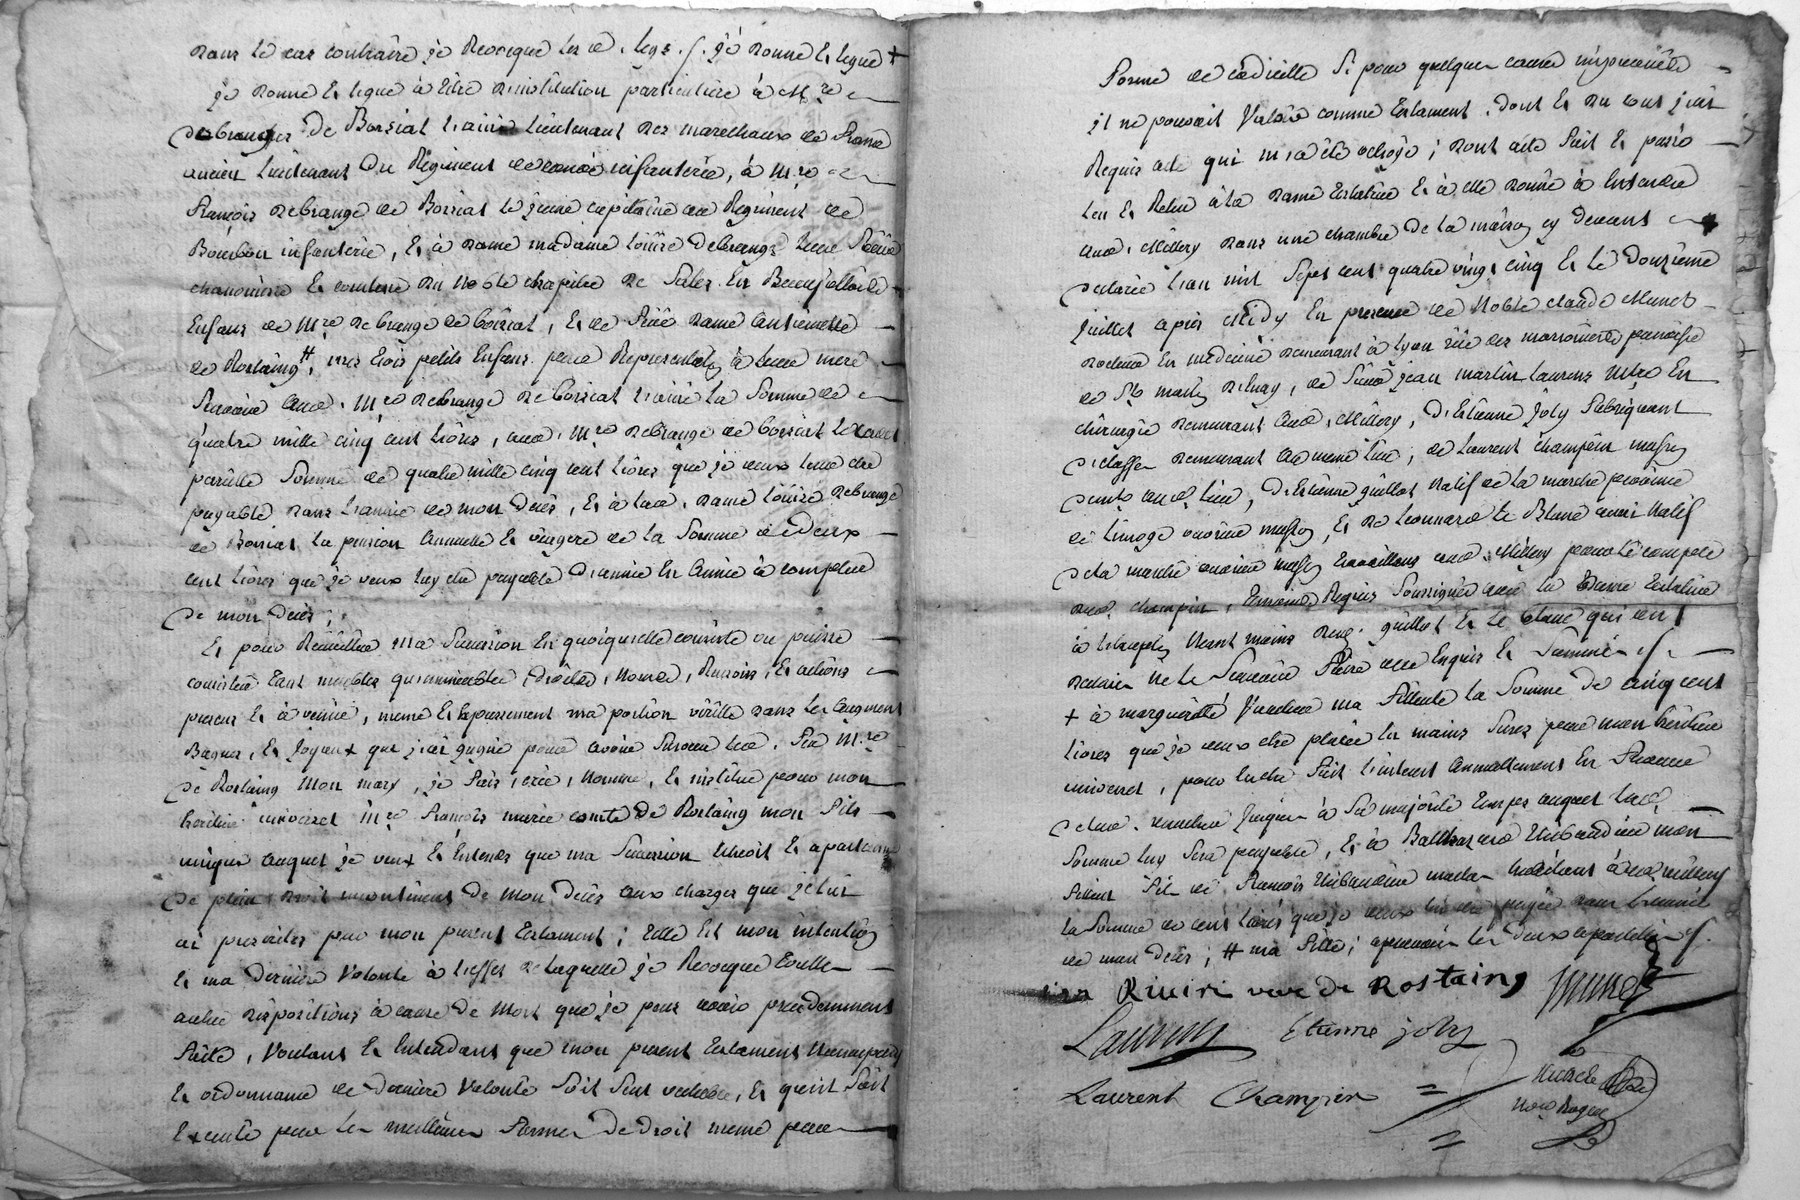 Dans le cas contraire je Revoque les d. legs ./. je donne Et legue +
je donne Et legue à titre d'institution particuliere à M.re
debrange De Borsiat L'ainé Lieutenant des marechaux de france
ancien Lieutenant Du Regiment de infanterie, à M.re
françois debrange de Borsiat le jeune capitaine au Regiment de
Bourbon infanterie, Et à dame madame Louise debrange leur Sœur
chanoinesse Et comtesse du Noble chapitre de Sales En Beaujollois
Enfans de M.re debrange de Borsiat, Et de feüe dame antoinette
de Rostaing #, mes trois petits Enfans pour Representation à leur mere
Scavoir aud. M.re debrange de Borsiat L'ainé la Somme de
quatre mille cinq cent Livres, aud. M.re debrange de Borsiat le cadet
pareille Somme de quatre mille cinq cent Livres que je veux leur etre
payable dans L'année de mon deces, Et à lad. dame Louise debrange
de Borsiat la pension annuelle Et viagere de la Somme de deux
cent Livres que je veux luy etre payable D'année En année à compter
De mon deces ;
Et pour Recüeillir ma Succession En quoiqu'elle consiste ou puisse
consister tant meubles qu'immeubles, droits, noms, Raisons, Et actions
presens Et à venir, meme Et Expressement ma portion virille dans les augment
Bagues, Et Joyaux que j'ai gagné pour avoir Survecu led. feu M.re
De Rostaing Mon mary, je fais, crée, nomme, Et institue pour mon
heritier universel M.re françois marie comte De Rostaing mon fils
unique auquel je veux Et Entends que ma Succession Echeoit Et apartienne
De plein droit au moment De mon deces aux charges que je lui
ai prescrites par mon present testament ; telle Est mon intention
Et ma derniere Volonté à L'effet de laquelle je Revoque toutte
autre dispositions à cause De mort que je peux avoir precedemment
faite, Voulans Et Entendans que mon present testament
Et ordonnance de derniere Volonté soit Seul valable, Et qu'il soit
Executé par les meilleures formes De droit meme par
forme de codicille Si pour quelque cause imprevüe
il ne pouvoit Valoir comme testament. dont Et du tout j'ai
Requis acte qui m'a été octroyé ; dont acte fait Et passé
leu Et Releu à la dame testatrice Et à elle donné à Entendre
aud. Millery dans une chambre De la maison cy devant
declarée L'an mil Sept cent quatre vingt cinq Et le Douzieme
juillet après Midy En presence de Noble claude Munet
docteur En medecine demeurant à Lyon rüe des marroniers paroisse
de St. martin d'Ainay, de Sieur jean martin Laurens M.tre En
chirurgie demeurant aud. Millery, D'Etienne Joly fabriquant
D'etoffes demeurant au meme lieu, de Laurent champin masson
dud. lieu, D'Etienne guillot Natif de la marche province
de Limoge ouvrier masson, Et de Leonnard le Blanc aussi Natif
De la marche ouvrier masson travaillans aud. Millery pour le compte
dud. champin, temoins Requis Soussignés avec la Dame testatrice
à L'exception Neant moins desd. guillot Et le blanc qui ont
declaré ne le Scavoir faire de ce Enquis Et Sommés ./.
+ à marguerite Vincent ma filleule la Somme De cinq cent
Livres que je veux etre placée En mains sures par mon heritier
universel, pour luy etre fait L'interet annuellement En faveur
De lad. jusqu'à Sa majorité temps auquel lad.
Somme luy sera payable, Et à Balthazard thibaudier mon
filleul fils de françois thibaudier habitant à Millery
la Somme de cent Livres que je veux lui etre payée dans L'année
de mon deces ; # ma fille ; approuvés les deux apostilles ./.
Riuiri veve de Rostaing Munet
Laurens Etienne joly
Laurent Champin